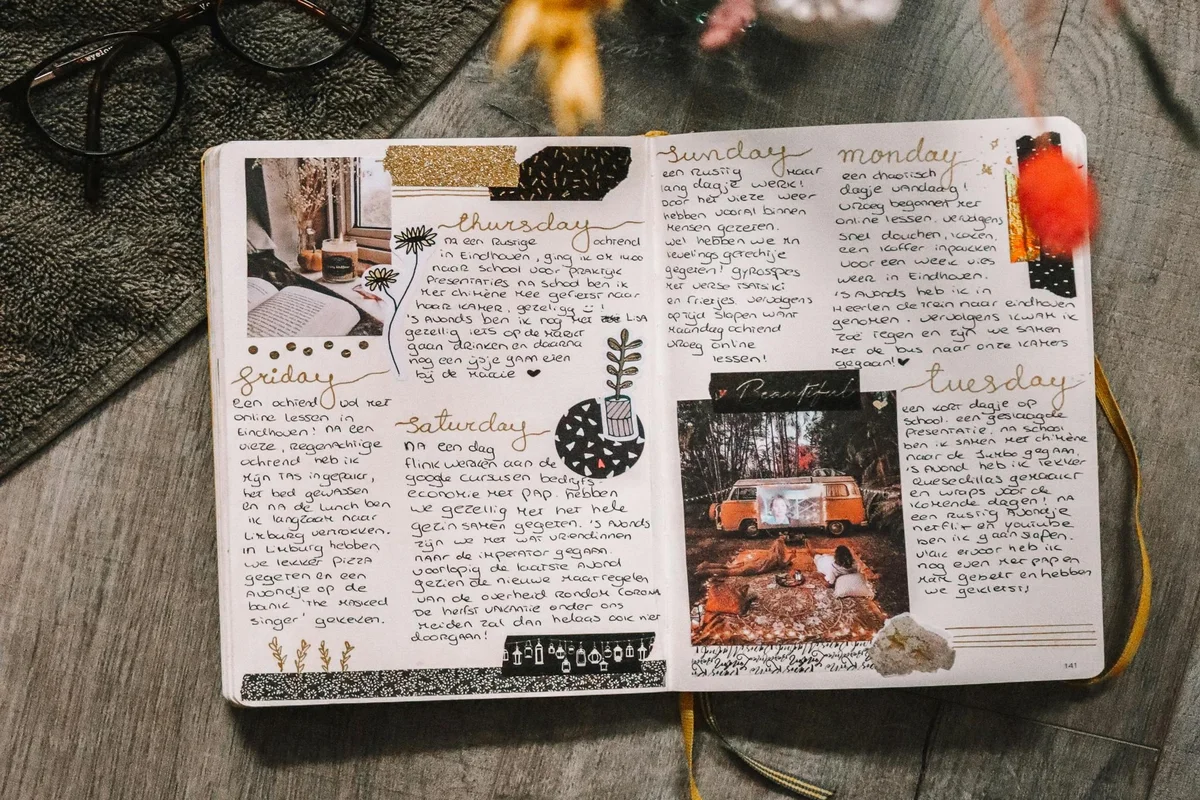 thursday
na een rustige ochrend
in Eindhoven, ging ik om 1400
naar school voor praktijk
presentaties. na school ben ik
met chimène mee gefietst naar
haar kamer, gezellig :)!
's avonds ben ik nog met Lisa
gezellig iets op de markt
gaan drinken en daarna
nog een ijsje gaan eten
bij de Haaie ♥
friday
een ochtend vol met
online lessen in
Eindhoven! na een
vieze, regenachtige
ochtend heb ik
mijn tas ingepakt,
het bed gewassen
en na de lunch ben
ik langzaam naar
Limburg vertrokken.
in Limburg hebben
we lekker pizza
gegeten en een
avondje op de
bank 'the masked
singer' gekeken.
saturday
na een dag
flink werken aan de
google cursussen bedrijfs
economie met pap. hebben
we gezellig met het hele
gezin samen gegeten. 's avonds
zijn we met wat vriendinnen
naar de imperator gegaan.
voorlopig de laatste avond
gezien de nieuwe maatregelen
van de overheid rondom corona
de herfst vakantie onder ons
meiden zal dan helaas ook niet
doorgaan!
sunday
een rustig maar
lang dagje werk!
door het vieze weer
hebben vooral binnen
mensen gezeten.
wel hebben we mn
lievelings gerechtje
gegeten! gyrosspies
met verse tsatsiki
en frietjes. vervolgens
optijd slapen want
maandag ochtend
vroeg online
lessen!
monday
een chaotisch
dagje vandaag!
vroeg begonnen met
online lessen. vervolgens
snel douchen, koken,
een koffer inpakken
voor een week vies
weer in Eindhoven.
's avonds heb ik in
Heerlen de trein naar eindhoven
genomen. vervolgens kwam ik
zoë tegen en zijn we samen
met de bus naar onze kamers
gegaan! ♥
Beautiful
tuesday
een kort dagje op
school. een geslaagde
presentatie. na school
ben ik samen met chimène
naar de Jumbo gegaan.
's avond heb ik lekker
quesadillas gemaakt
en wraps voor de
komende dagen! na
een rustig avondje
netflix en youtube
ben ik gaan slapen.
vlak ervoor heb ik
nog even met pap en
mam gebeld en hebben
we gekletst!
141